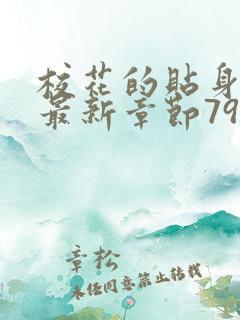 校花的贴身
最新章节79
章松
未经同意禁止转载